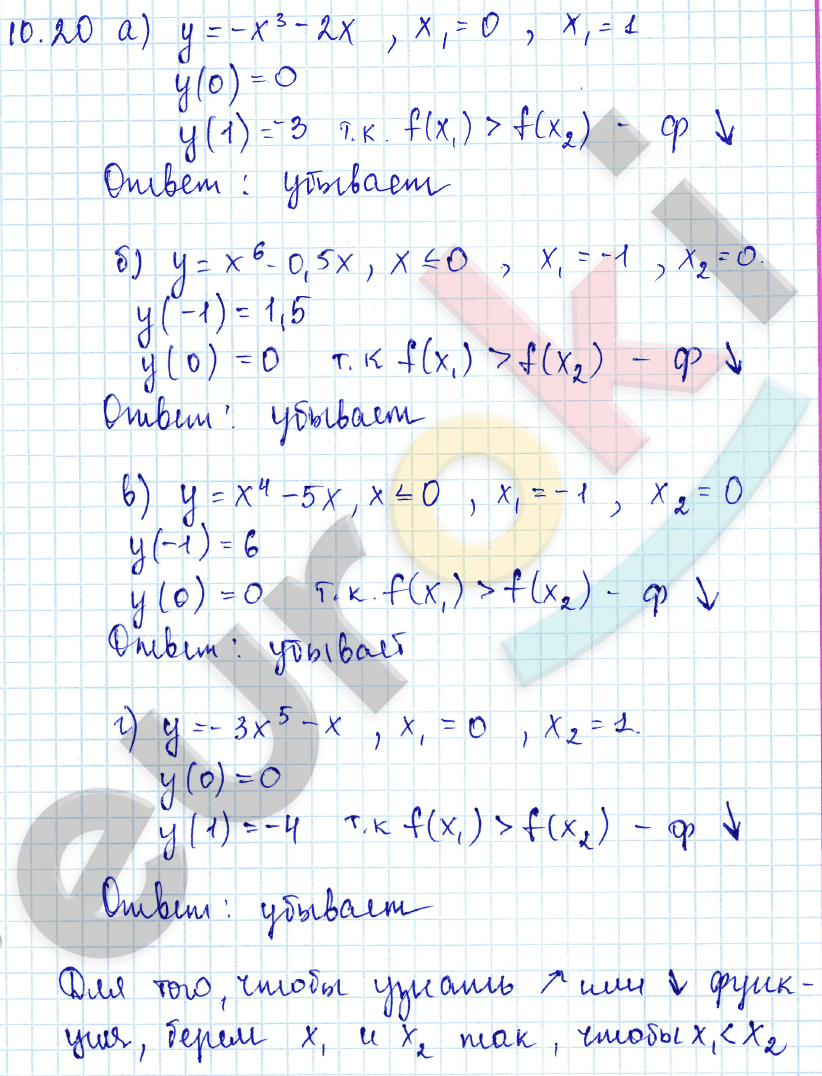 10.20 а) y = -x³ - 2x , x₁ = 0 , x₁ = 1
y(0) = 0
y(1) = -3 т.к. f(x₁) > f(x₂) - ф ↓
Ответ : убывает
б) y = x⁶ - 0,5x , x ≤ 0 , x₁ = -1 , x₂ = 0.
y(-1) = 1,5
y(0) = 0 т.к f(x₁) > f(x₂) - ф ↓
Ответ : убывает
в) y = x⁴ - 5x , x ≤ 0 , x₁ = -1 , x₂ = 0
y(-1) = 6
y(0) = 0 т.к. f(x₁) > f(x₂) - ф ↓
Ответ : убывает
г) y = -3x⁵ - x , x₁ = 0 , x₂ = 1.
y(0) = 0
y(1) = -4 т.к f(x₁) > f(x₂) - ф ↓
Ответ : убывает
Для того, чтобы узнать ↗ или ↓ функ-
ция, берем x₁ и x₂ так, чтобы x₁ < x₂
euroki